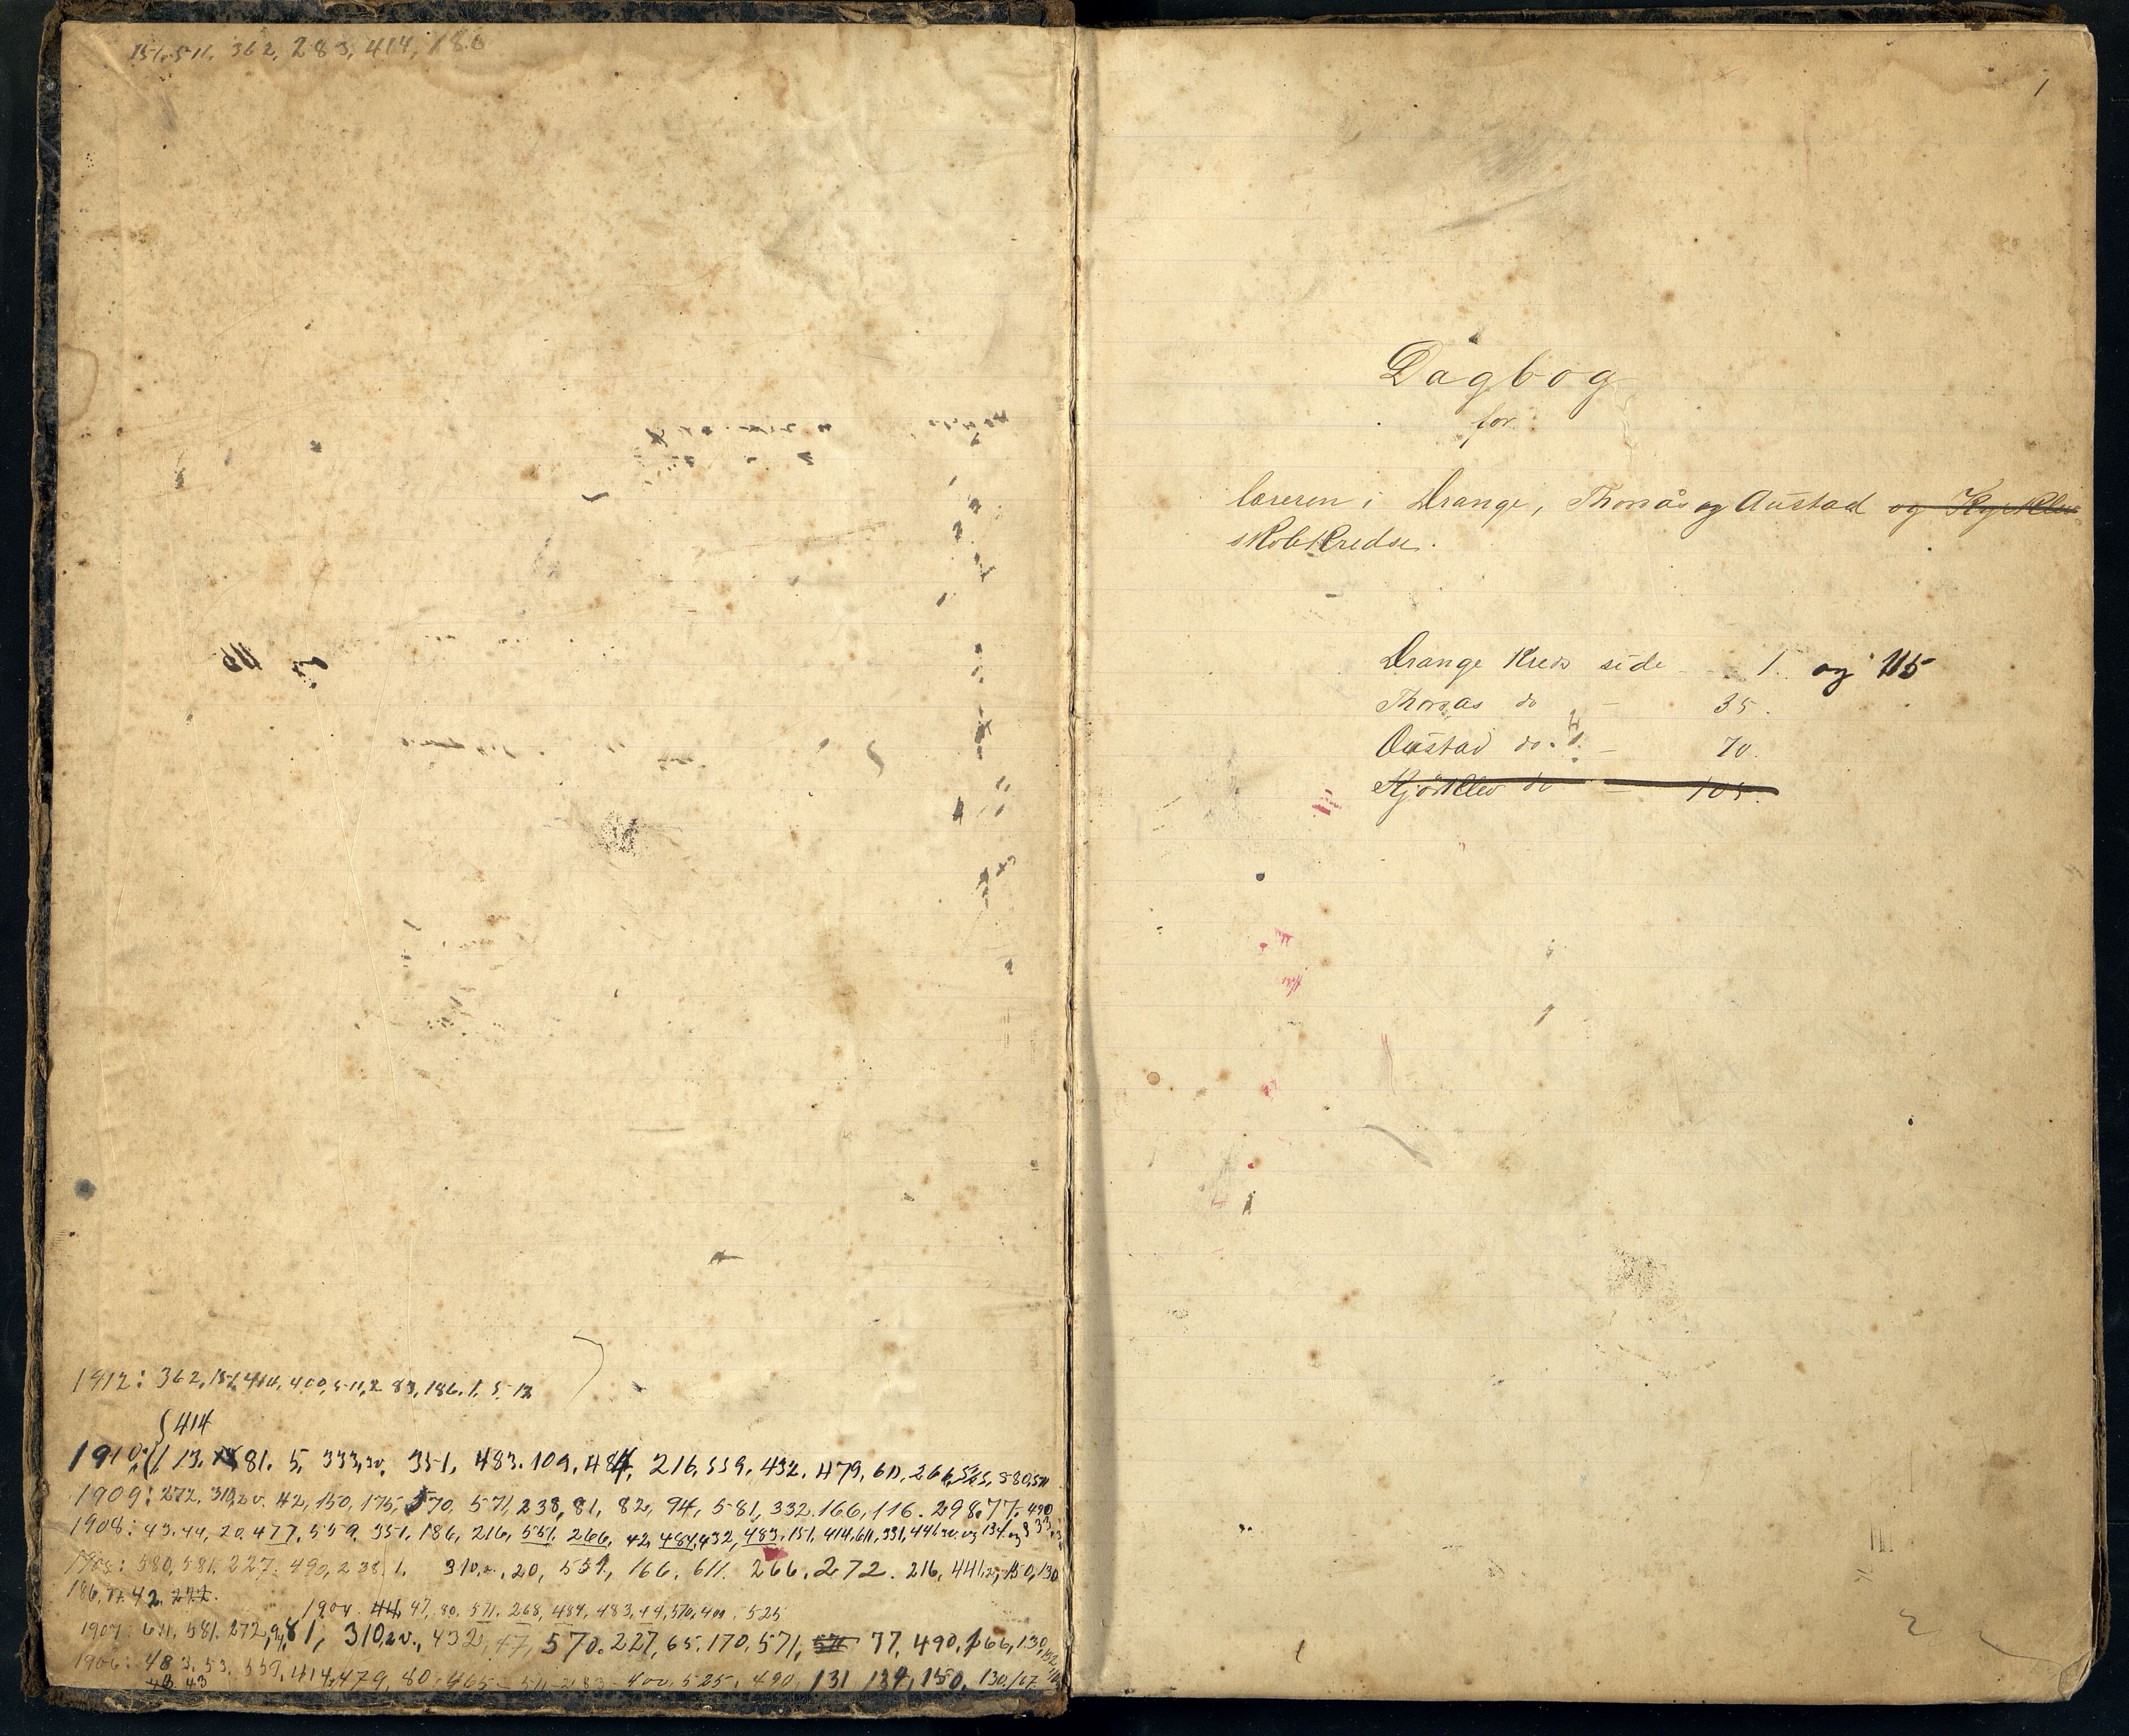 151, 511, 362, 283, 414, 186
1912: 362, 151, 414, 400, 511, 283, 186, 1, 5, 12
414
1910: 1, 13, 81, 5, 333, 351, 483, 109, 484, 216, 559, 432, 479, 611, 266, 580, 511
1909: 272, 310, 2 v. 42, 150, 175, 570, 571, 238, 81, 82, 94, 581, 332, 166, 116, 298, 77, 490
1908: 43, 44, 20, 477, 559, 351, 186, 216, 551, 266, 42, 484, 432, 483, 151, 414, 611, 331, 446 og 134 og 333
580, 581, 227, 490, 238, 1, 310, 20, 551, 166, 611, 266, 272, 216, 441, 150, 130
186, 42
44, 47, 80, 571, 268, 484, 483, 44, 570, 400, 525
611, 581, 272, 94, 81, 310, 2 v., 432, 47, 570, 227, 65, 170, 571, 77, 490, 166, 130
1906: 483, 53, 559, 414, 479, 80, 465, 511, 283, 400, 525, 490, 131, 134, 150, 130
48 43
1
Dagbog
for
læreren i Drange, Thorsås og Austad og
skolekredse.
Drange Kreds side 1. og 115
Thorsås do - 35.
Austad do. - 70.
Kjörklev do - 105.